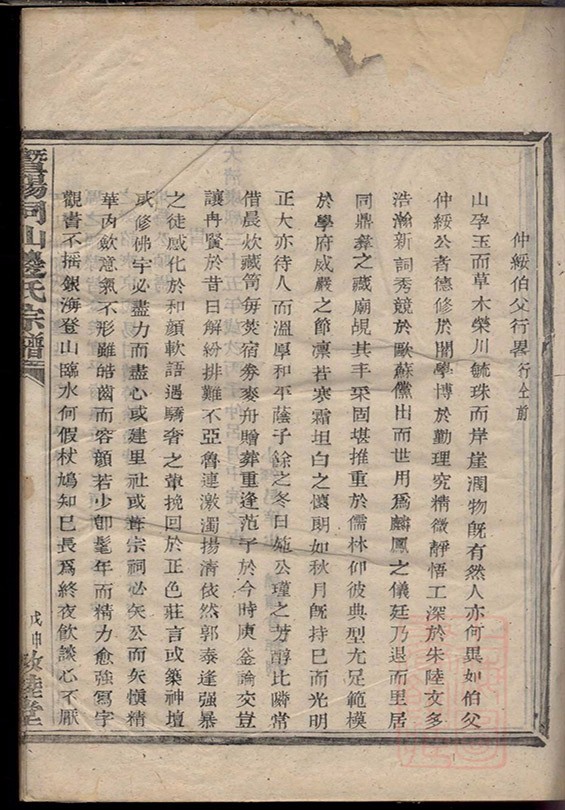 仲綏伯父行畧 行仝前
山孕玉而草木榮川毓珠而岸崖潤物旣有然人亦何異如伯父
仲綏公者德修於闇學博於勤理究精微靜悟工深於朱陸文多
浩瀚新詞秀競於歐蘇儻出而世用爲麟鳳之儀廷乃退而里居
同鼎彝之藏廟覘其丰采固堪推重於儒林仰彼典型尤足範模
於學府威嚴之節凛若寒霜坦白之懷朗如秋月旣持已而光明
正大亦待人而溫厚和平蔭子餘之冬日施公瑾之芳醇比隣常
借晨炊藏笥每焚宿劵麥舟贈葬重逢范子於今時庾釜論交豈
讓冉賢於昔日解紛排難不亞魯連激濁揚清依然郭泰逢强暴
之徒感化於和顏軟語遇驕奢之輩挽回於正色莊言或築神壇
或修佛宇必盡力而盡心或建里社或葺宗祠必矢公而矢愼精
華內歛意氣不形雖皓齒而容顏若少卽髦年而精力愈強寫字
觀書不搖銀海登山臨水何假杖鳩知已長爲終夜飲談心不厭
暨陽同山邊氏宗譜
戊申 敦睦堂